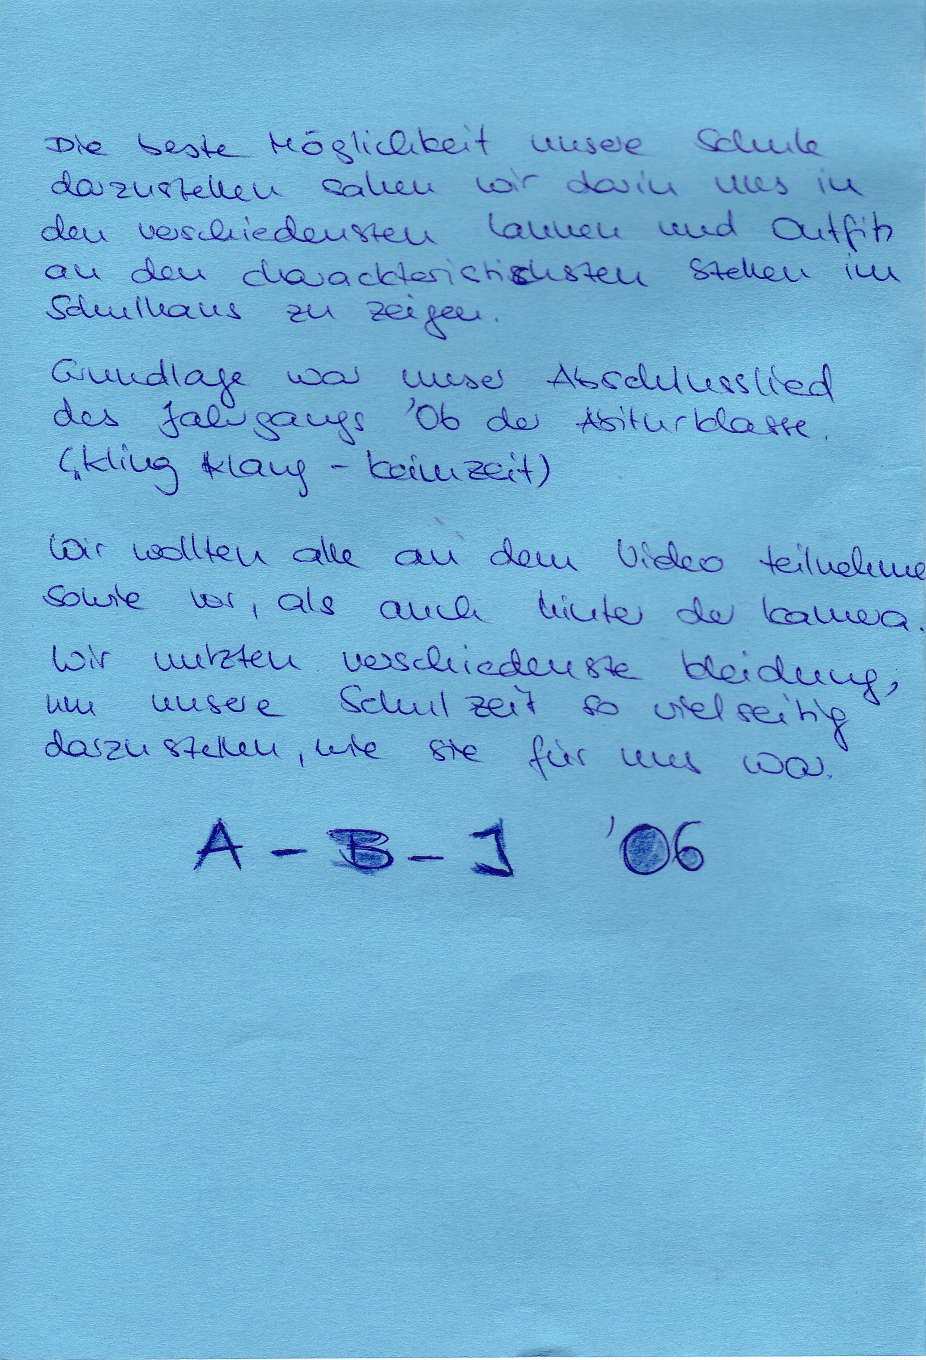 Die beste Möglichkeit unsere Schule
darzustellen sahen wir darin uns in
den verschiedensten Launen und Outfits
an den charackteristischsten Stellen im
Schulhaus zu zeigen.
Grundlage war unser Abschlusslied
des Jahrgangs '06 der Abiturklasse.
("Kling Klang - Keimzeit)
Wir wollten alle an dem Video teilnehme
sowie vor, als auch hinter der Kamera.
Wir nutzten verschiedenste Kleidung,
um unsere Schulzeit so vielseitig
darzustellen, wie sie für uns war.
A - B - I '06